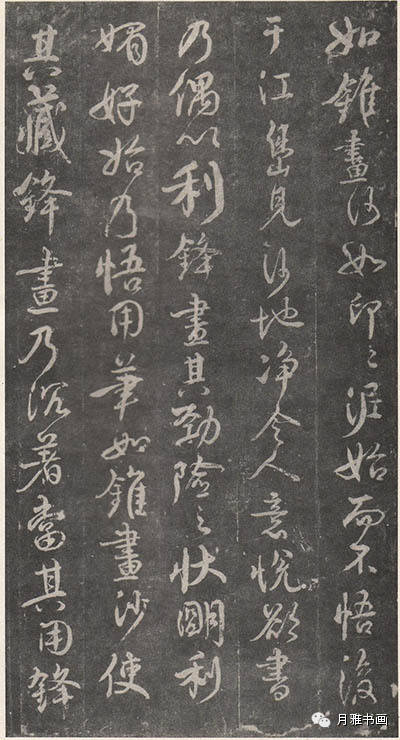 如錐畫沙如印々泥始而不悟後
于江島見沙地淨令人意悅欲書
乃偶以利鋒畫其勁險之狀朙利
媚好始乃悟用筆如錐畫沙使
其藏鋒畫乃沉著當其用鋒
月雅书画